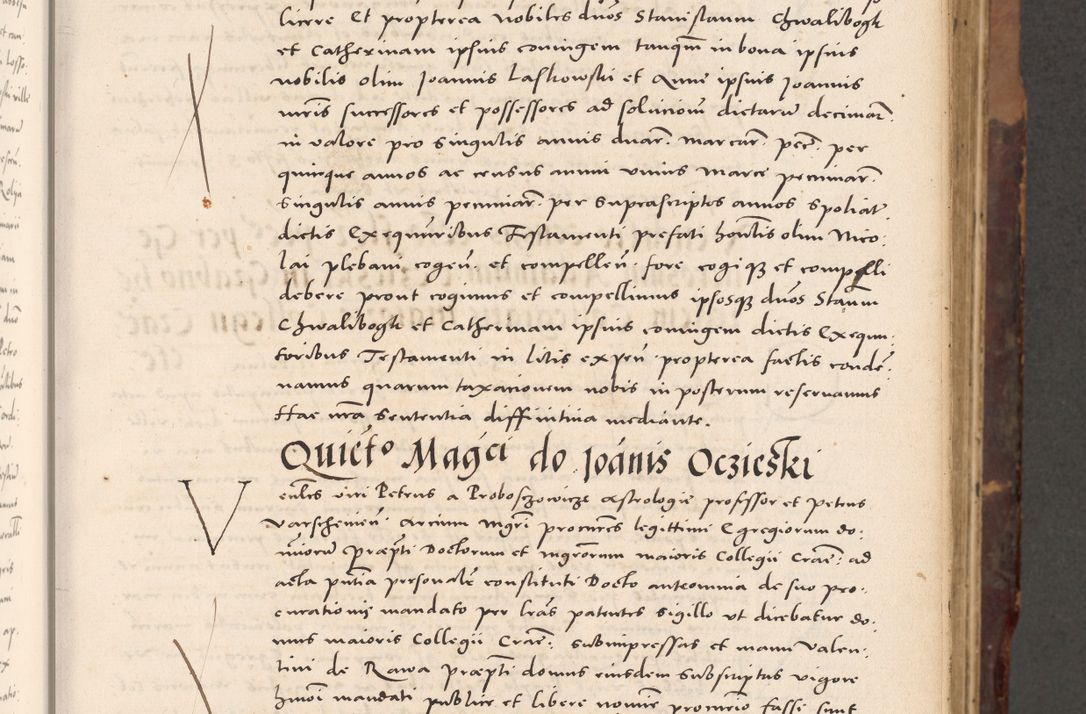 licere Et propterea Nobiles dnos Stanislaum Chwalibogk
et Catherinam ipsius coniugem tanqm in bona ipsius
nobilis olim Joannis Laskowski et Anne ipsius Joannis
successores et possessores ad solucionem dictaru decimar.
in valore pro singulis annis duar. marcar. pec. per
quinque annos ac census annui vnius marce pecuniar.
singulis annis pecuniar. per suprascriptos annos spoliat.
dictis Exequutoribus Testamenti prefati olim Nico:
lai plebani cogen. et compellen. fore cogiq3 et compelli
debere prout cogimus et compellimus ipsosq3 dnos Stanm
Chwalibogk et Catherinam ipsius coniugem dictis Exequu:
toribus Testamenti in litis expen. propterea factis conde:
namus quarum taxationem nobis in posterum reseruamus
Hac nra sententia diffinitiua mediante.
Quiet° Magci do Joanis Oczieski
Venles viri Petrus a Proboszowicze Astrologie professor et Petrus
Varschenien. Arcium mgri procures legittimi Egregiorum do:
Prepti Doctorum et mgrorum maioris Collegii Craē. ad
acta pntia personale constituti Docto anteomnia de suo pro:
curationis mandato per lras patentes sigillo vt dicebatur do:
mus maioris Collegii Craē. subimpressas et manu Valen:
tini de Rawa prepti domus eiusdem subscriptas vigore
hmoi mandati publice et libere nomie fassi sunt